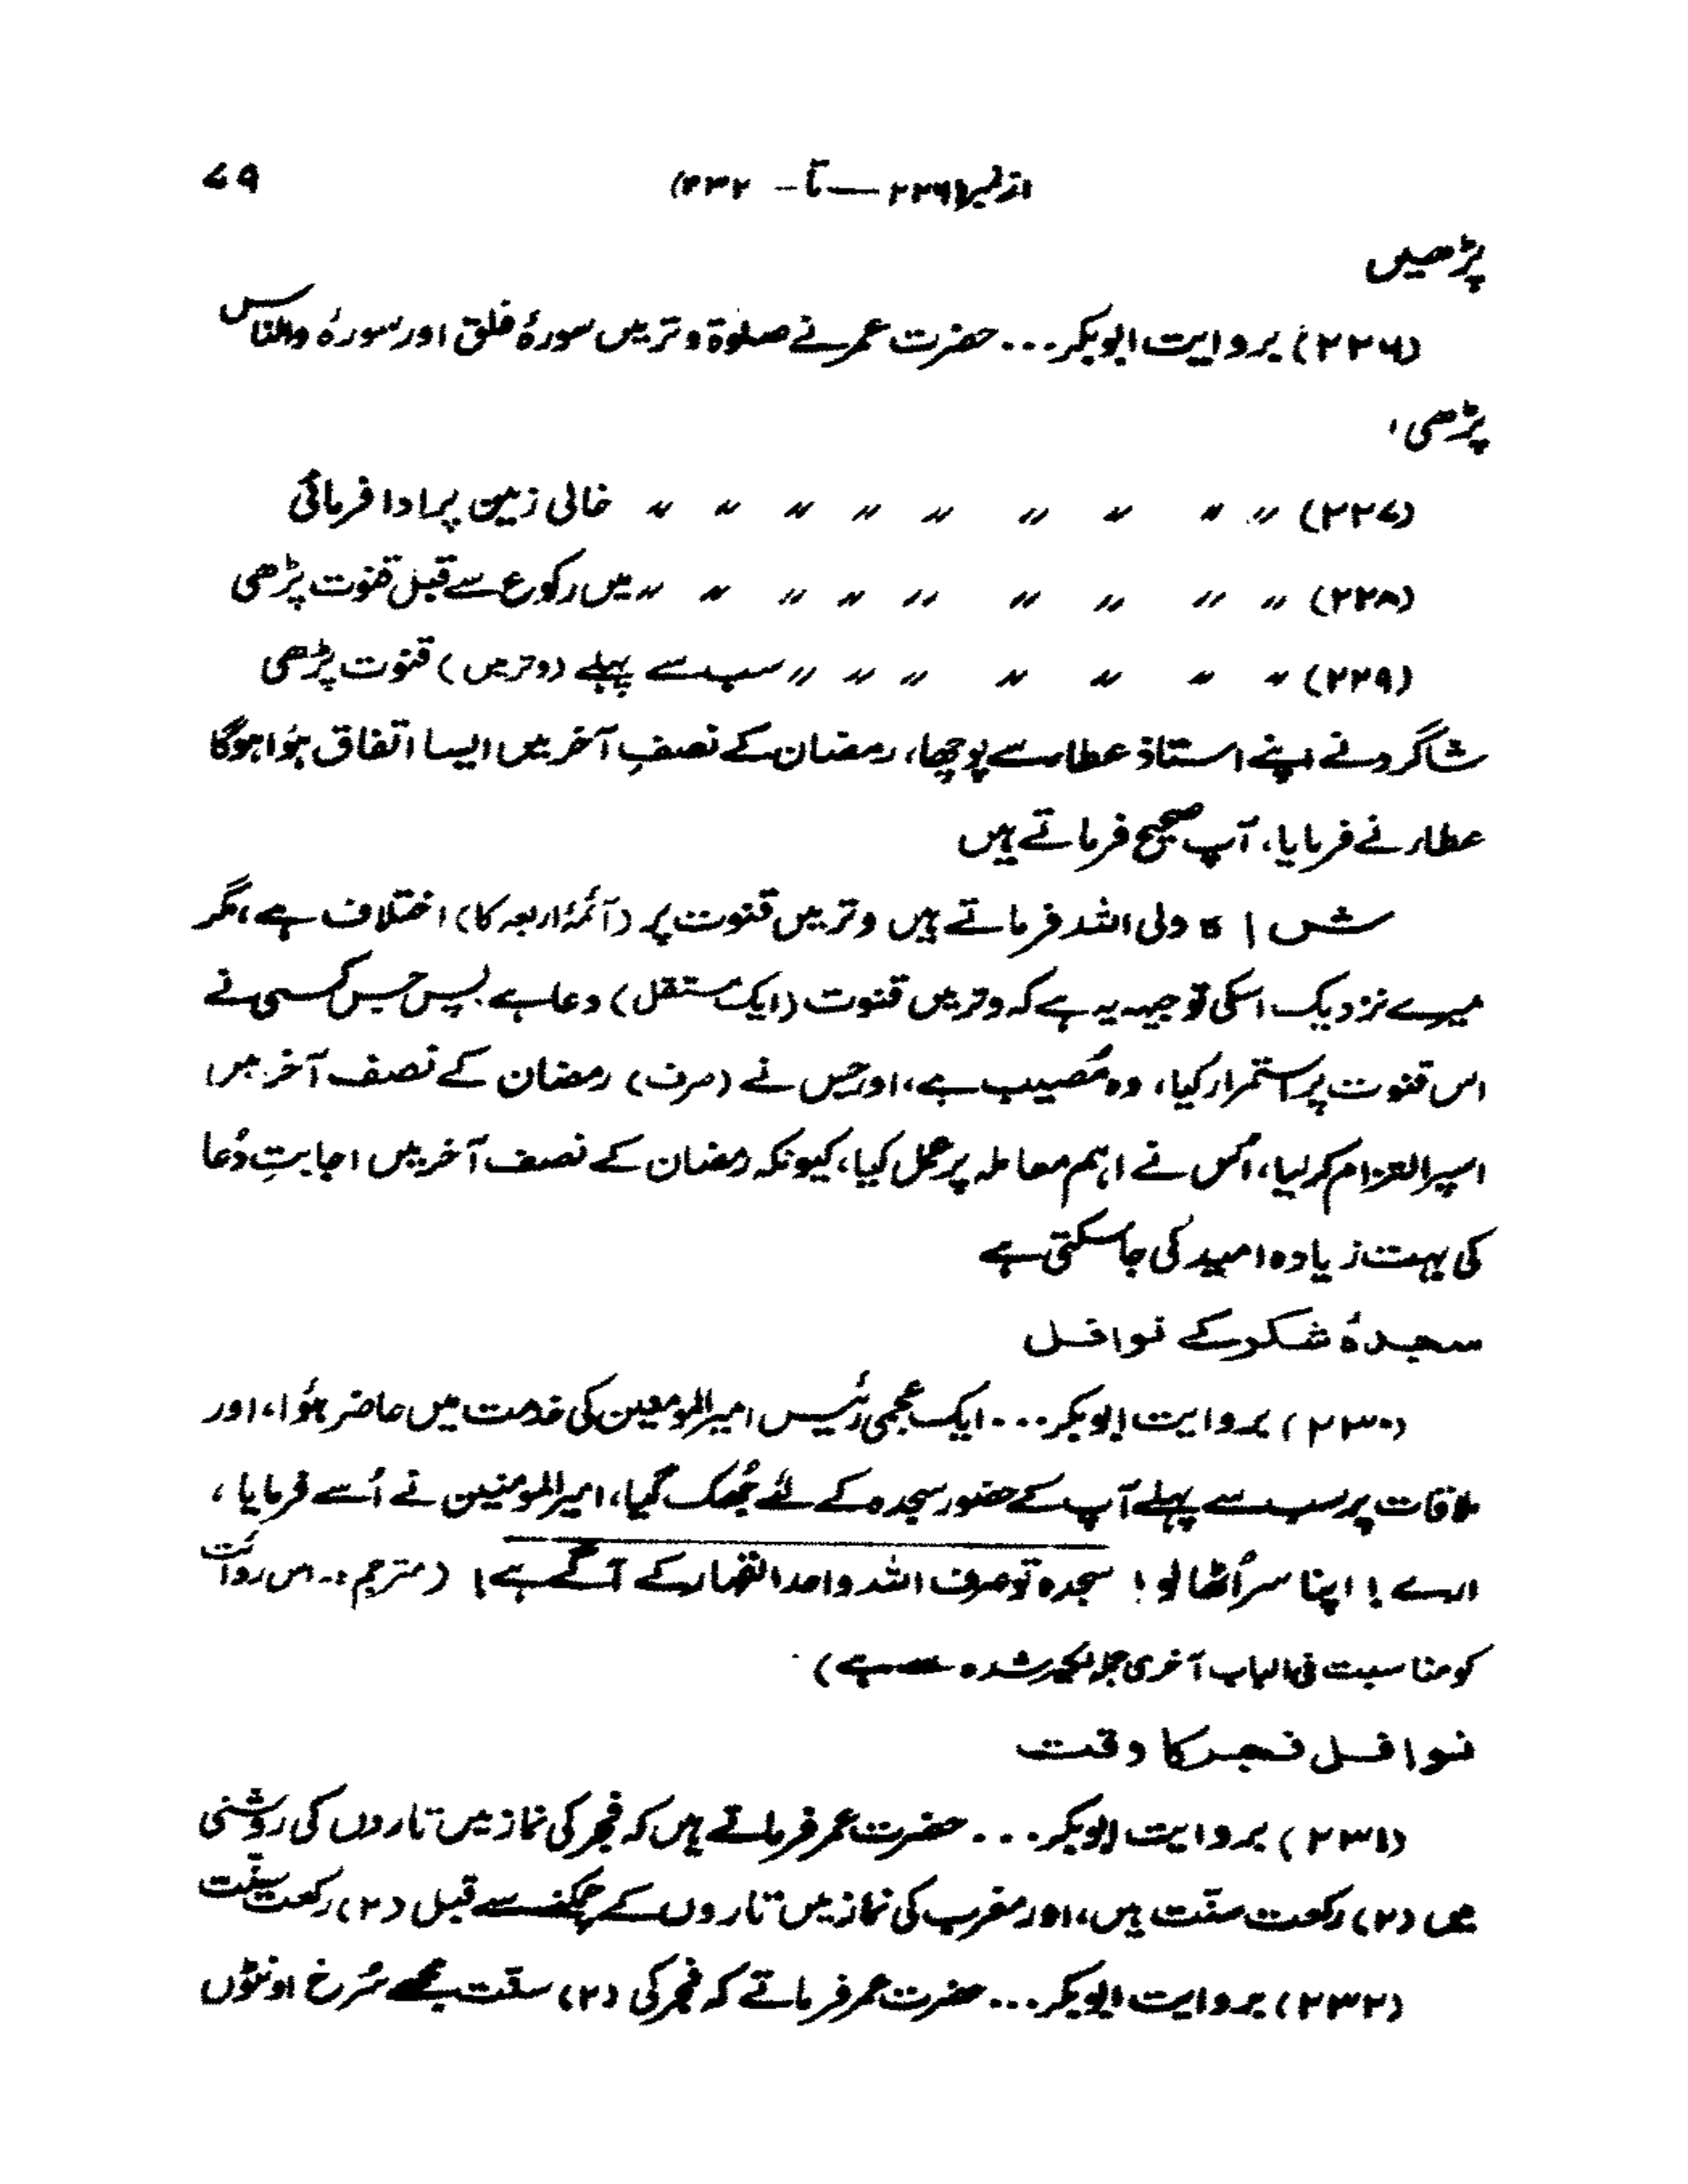 از نمبر (۲۲۶ — تا — ۲۳۲) ۷۹
پڑھیں
(۲۲۶) بروایت ابوبکر ... حضرت عمر نے صلوٰۃ وتر میں سورۂ فلق اور سورۂ والناس
پڑھی،
(۲۲۷) 〃 〃 〃 〃 〃 〃 〃 〃 〃 خالی زمین پر ادا فرمائی
(۲۲۸) 〃 〃 〃 〃 〃 〃 〃 〃 〃 میں رکوع سے قبل قنوت پڑھی
(۲۲۹) 〃 〃 〃 〃 〃 〃 〃 〃 سب سے پہلے (وتر میں) قنوت پڑھی
شاگرد نے اپنے استاذ عطار سے پوچھا، رمضان کے نصفِ آخر میں ایسا اتفاق ہؤا ہوگا
عطار نے فرمایا، آپ صحیح فرماتے ہیں
ش ا ہ ولی اللہ فرماتے ہیں وتر میں قنوت پر (آئمۂ اربعہ کا) اختلاف ہے، مگر
میرے نزدیک اسکی توجیہہ یہ ہے کہ وتر میں قنوت (ایک مستقل) دعا ہے بپس جس کسی نے
اس قنوت پر استمرار کیا، وہ مُصیب ہے، اور جس نے (صرف) رمضان کے نصف آخر میں
اسپر التزام کرلیا، اُس نے اہم معاملہ پر عمل کیا، کیونکہ رمضان کے نصف آخر میں اجابتِ دُعا
کی بہت زیادہ امید کی جاسکتی ہے
سجدۂ شکر کے نوافل
(۲۳۰) بروایت ابوبکر ... ایک عجمی رئیس امیرالمومنین کی خدمت میں حاضر ہؤا، اور
ملاقات پر سب سے پہلے آپ کے حضور سجدہ کے لئے جُھک گیا، امیرالمومنین نے اُسے فرمایا،
ارے! اپنا سر اُٹھا لو! سجدہ تو صرف اللہ واحد القہار کے آگے ہے! (مترجم :۔ اس روائت
کو مناسبت فی الباب آخری جملہ شدہ سے ہے)
نوافل فجر کا وقت
(۲۳۱) بروایت ابوبکر ... حضرت عمر فرماتے ہیں کہ فجر کی نماز میں تاروں کی روشنی
میں (۲) رکعت سنّت ہیں، اور مغرب کی نماز میں تاروں کے چمکنے سے قبل (۲) رکعت سنّت
(۲۳۲) بروایت ابوبکر ... حضرت عمر فرماتے کہ فجر کی (۲) سنّت مجھے سُرخ اونٹوں